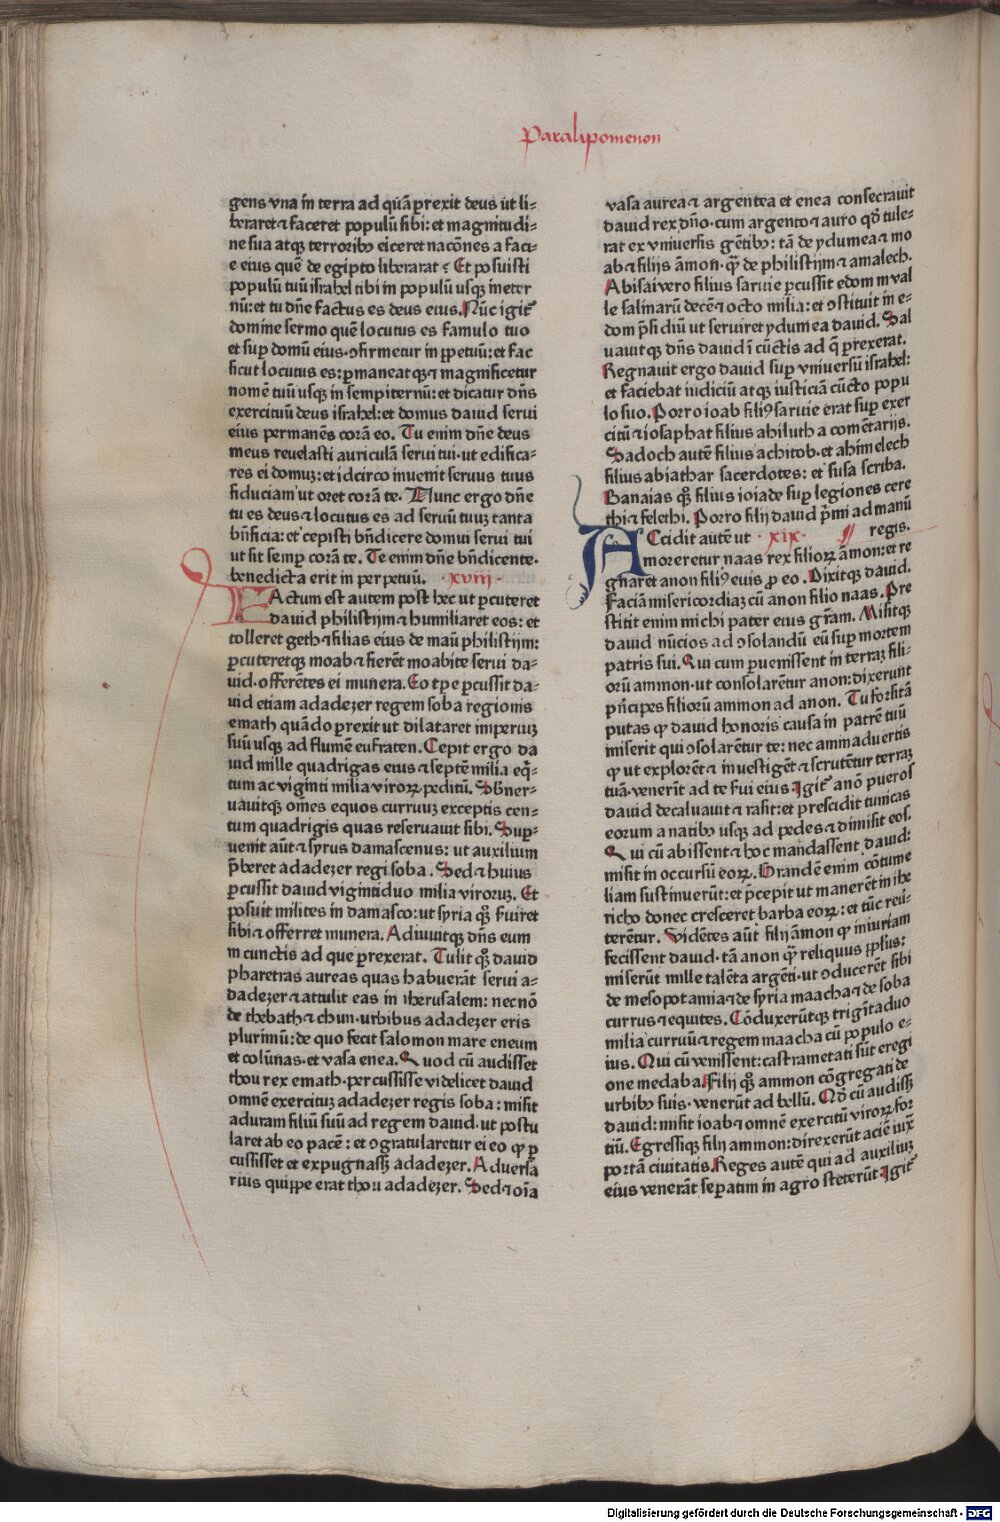 Paralipomenon
gens vna in terra ad quā ꝑrexit deus ut li-
beraret ⁊ faceret populū sibi: et magnitudi-
ne sua atqꝫ terroribꝰ eiceret nacōnes a faci-
e eius quē de egipto liberarat ⸮ Et posuisti
populū tuū israhel tibi in populū usqꝫ in eter
nū: et tu dn̄e factus es deus eius. Nūc igit᷑
domine sermo quē locutus es famulo tuo
et suꝑ domū eius ꝯfirmetur in ꝑpetuū: et fac
sicut locutus es: ꝑmaneat qꝫ ⁊ magnificetur
nomē tuū usqꝫ in sempiternū: et dicatur dn̄s
exercituū deus israhel: et domus dauid serui
eius permanēs corā eo. Tu enim dn̄e deus
meus reuelasti auriculā serui tui· ut edifica-
res ei domuꝫ: et idcirco inuenit seruus tuus
fiduciam ut oret corā te. Nunc ergo dn̄e
tu es deus ⁊ locutus es ad seruū tuuꝫ tanta
bn̄ficia: et cepisti bn̄dicere domui serui tui
ut sit semꝑ corā te. Te enim dn̄e bn̄dicente·
benedicta erit in perpetuū. ·xviij·
FActum est autem post hec ut ꝑcuteret
dauid philistijm ⁊ humiliaret eos: et
tolleret geth ⁊ filias eius de manū philistijm:
ꝑcuteretqꝫ moab ⁊ fierēt moabite serui da-
uid· offerētes ei munera. Eo tꝑe ꝑcussit da-
uid etiam adadezer regem soba regionis
emath quādo ꝑrexit ut dilataret imperiuꝫ
suū usqꝫ ad flumē eufraten. Cepit ergo da
uid mille quadrigas eius ⁊ septē milia eq̄-
tum ac viginti milia viroꝝ peditū. Sbner-
uauitqꝫ om̄es equos curruuꝫ exceptis cen-
tum quadrigis quas reseruauit sibi. Suꝑ-
uenit aūt ⁊ syrus damascenus: ut auxilium
p̄beret adadezer regi soba. Sed ⁊ huius
ꝑcussit dauid vigintiduo milia viroruꝫ. Et
posuit milites in damasco: ut syria qꝫ̄ s̄uiret
sibi ⁊ offerret munera. Adiuuitqꝫ dn̄s eum
in cunctis ad que ꝑrexerat. Tulit qꝫ̄ dauid
pharetras aureas quas habuerāt serui a-
dadezer ⁊ attulit eas in iherusalem: necnō
de thebath ⁊ chun· urbibus adadezer eris
plurimū: de quo fecit salomon mare eneum
et colūnas· et vasa enea. Quod cū audisset
thou rex emath· percussisse videlicet dauid
omnē exercituꝫ adadezer regis soba: misit
aduram filiū suū ad regem dauid· ut postu
laret ab eo pacē: et ꝯgratularetur ei eo ꝙ ꝑ
cussisset et expugnass̄ adadezer. Aduersa
rius quippe erat thou adadezer. Sed ⁊ oīa
vasa aurea ⁊ argentea et enea consecrauit
dauid rex dn̄o· cum argento ⁊ auro qd̄ tule-
rat ex vniuersis gētibꝰ: tā de ydumea ⁊ mo
ab ⁊ filijs āmon· qꝫ̄ de philistijm ⁊ amalech.
Abisai vero filius saruie ꝑcussit edom in val
le salinarū decē ⁊ octo milia: et ꝯstituit in e-
dom p̄sidiū ut seruiret ydumea dauid. Sal
uauitqꝫ dn̄s dauid ī cūctis ad q̄ ꝑrexerat.
Regnauit ergo dauid suꝑ vniuersū israhel:
et faciebat iudiciū atqꝫ iusticiā cūcto popu
lo suo. Porro ioab filiꝰ saruie erat suꝑ exer
citū ⁊ iosaphat filius ahiluth a comētarijs.
Sadoch autē filius achitob· et ahimelech
filius abiathar sacerdotes: et susa scriba.
Banaias qꝫ̄ filius ioiade suꝑ legiones cere
thi ⁊ felethi. Porro filij dauid p̄mi ad manū
ACcidit autē ut ·xix· ¶ regis.
moreretur naas rex filioꝝ āmon: et re
gnaret anon filiꝰ euis ꝓ eo. Dixitqꝫ dauid.
Faciā misericordiaꝫ cū anon filio naas. Pre
stitit enim michi pater eius gr̄am. Misitqꝫ
dauid nūcios ad ꝯsolandū eū suꝑ mortem
patris sui. Qui cum ꝑuenissent in terraꝫ fili-
orū ammon· ut consolarētur anon: dixerunt
pn̄cipes filiorū ammon ad anon. Tu forsitā
putas ꝙ dauid honoris causa in patrē tuū
miserit qui ꝯsolarētur te: nec ammaduertis
ꝙ ut explorēt ⁊ inuestigēt ⁊ scrutētur terraꝫ
tuā· venerīt ad te s̄ui eius. Igit᷑ anō pueros
dauid decaluauit ⁊ rasit: et prescidit tunicas
eorum a natibꝰ usqꝫ ad pedes ⁊ dimisit eos.
Qui cū abissent ⁊ hoc mandassent dauid:
misit in occursū eoꝝ. Grandē enim cōtume
liam sustinuerūt: et p̄cepit ut manerēt in ihe
richo donec cresceret barba eoꝝ: et tūc reu̅-
terētur. Vidētes aūt filij āmon ꝙ iniuriam
fecissent dauid· tā anon qꝫ̄ reliquus ꝓplus:
miserūt mille talēta argēti· ut ꝯducerēt sibi
de mesopotamia ⁊ de syria maacha ⁊ de soba
currus ⁊ equites. Cōduxerūtqꝫ trigīta duo
milia curruū ⁊ regem maacha cū populo e-
ius. Qui cū venissent: castrametati sūt eregi
one medaba. Filij qꝫ̄ ammon cōgregati de
urbibꝰ suis· venerūt ad bellū. Qd̄ cū audiss̄
dauid: misit ioab ⁊ omnē exercitū viroꝝ for
tiū. Egressiqꝫ filij ammon: direxerūt aciē iux̄
portā ciuitatis. Reges autē qui ad auxiliuꝫ
eius venerāt seꝑatim in agro steterūt. Igit᷑
Digitalisierung gefördert durch die Deutsche Forschungsgemeinschaft - DFG